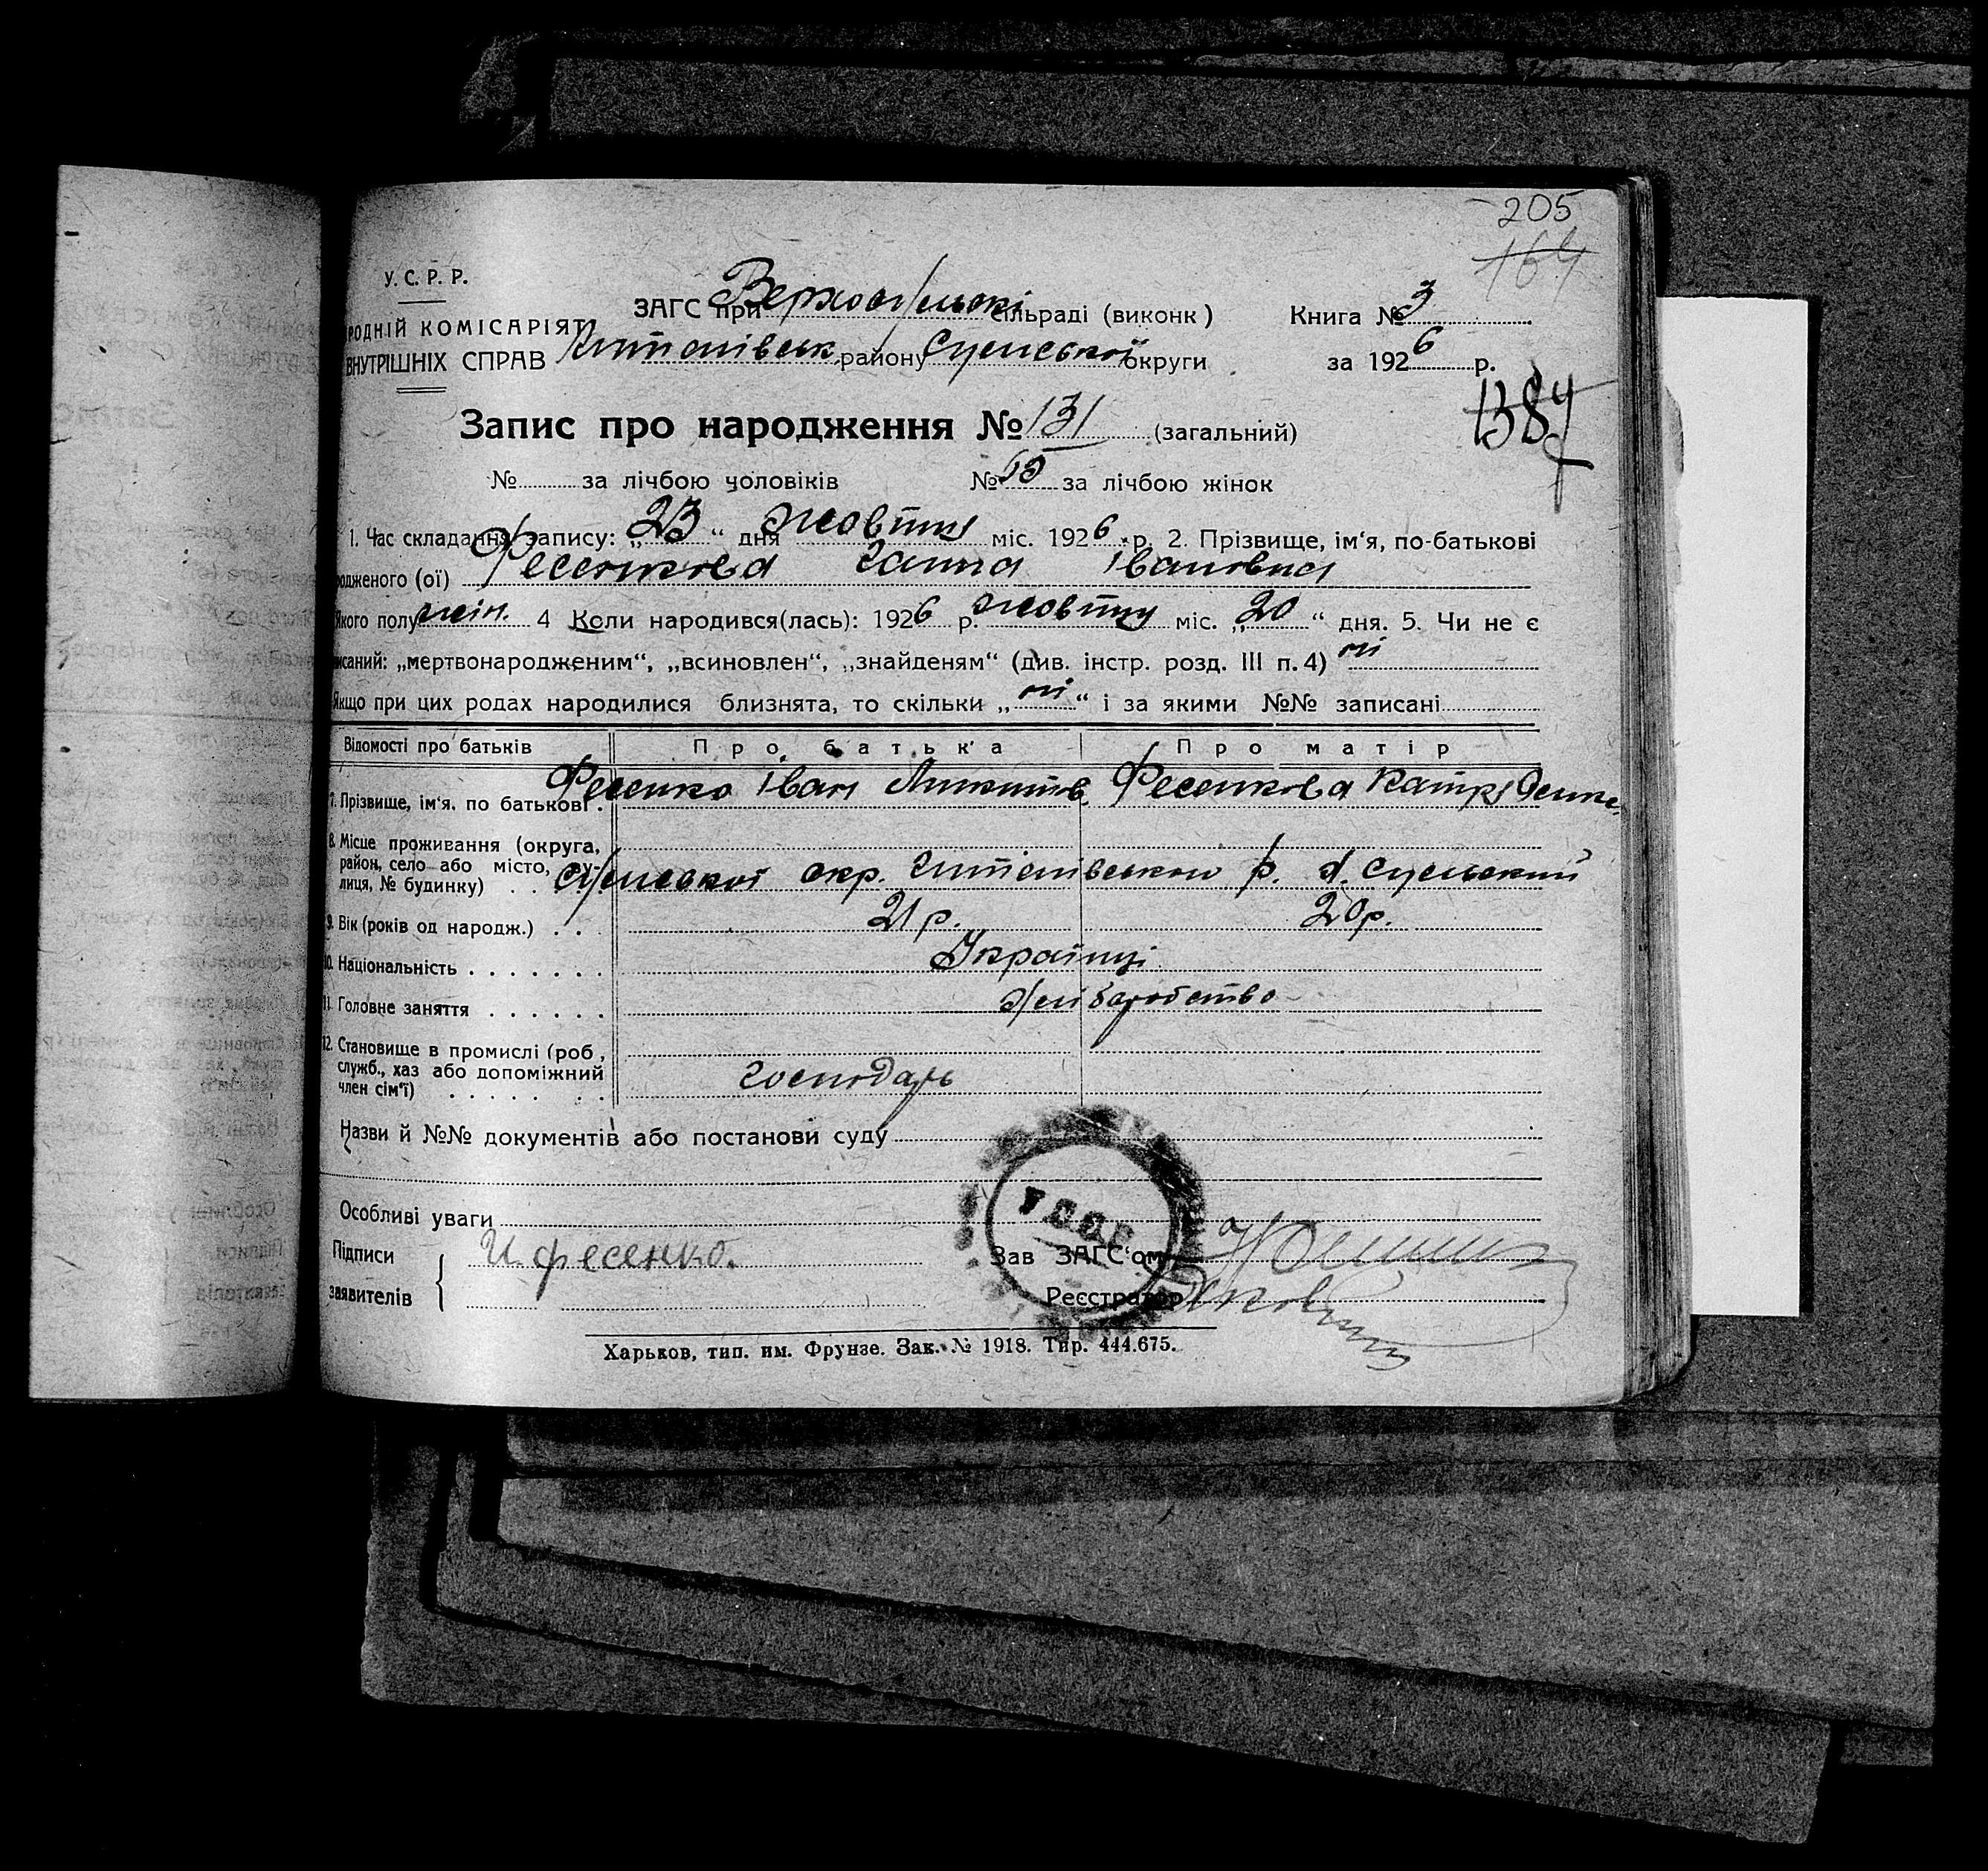 205
164
У. С. Р. Р.
ЗАГС при сільраді (виконк) Книга № 3
РОДНІЙ КОМІСАРІЯТ
ВНУТРІШНІХ СПРАВ району Сумської округи за 1926 р.
Запис про народження № 131 (загальний)
№ за лічбою чоловіків № за лічбою жінок
1. Час складання запису: „23“ дня жовтня міс. 1926 р. 2. Прізвище, ім‘я, по-батькові
родженого (ої) Фесенкова Ганна Івановна
Якого полу жін. 4 Коли народився(лась): 1926 р. жовтня міс. „20“ дня. 5. Чи не є
писаний: „мертвонародженим“, „всиновлен“, „знайденям“ (див. інстр. розд. III п. 4) ні
Якщо при цих родах народилися близнята, то скільки „ні“ і за якими №№ записані
Відомості про батьків Про батька Про матір
7. Прізвище, ім‘я, по батькові Фесенко Іван Фесенкова
8. Місце проживання (округа, район, село або місто, вулиця, № будинку) Сумської окр. р.
9. Вік (років од народж.) 21 р. 20 р.
10. Національність Українці
11. Головне заняття Хліборобство
12. Становище в промислі (роб., служб., хаз або допоміжний член сім‘ї) господарь
Назви й №№ документів або постанови суду
Особливі уваги
Підписи заявителів И. Фесенко.
УСРР
Зав ЗАГС‘ом
Реєстратор
Харьков, тип. им. Фрунзе. Зак. № 1918. Тир. 444.675.